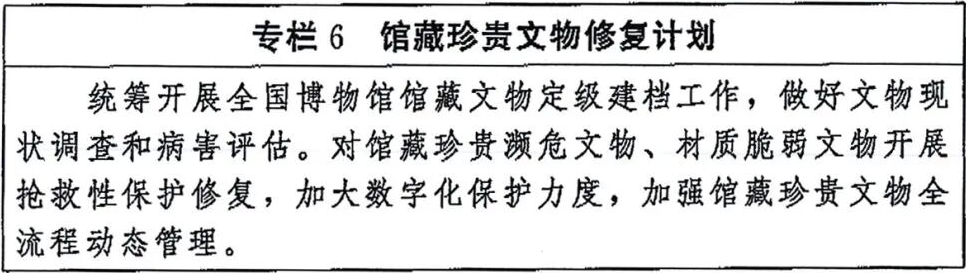 专栏 6 馆藏珍贵文物修复计划
统筹开展全国博物馆馆藏文物定级建档工作，做好文物现
状调查和病害评估。对馆藏珍贵濒危文物、材质脆弱文物开展
抢救性保护修复，加大数字化保护力度，加强馆藏珍贵文物全
流程动态管理。